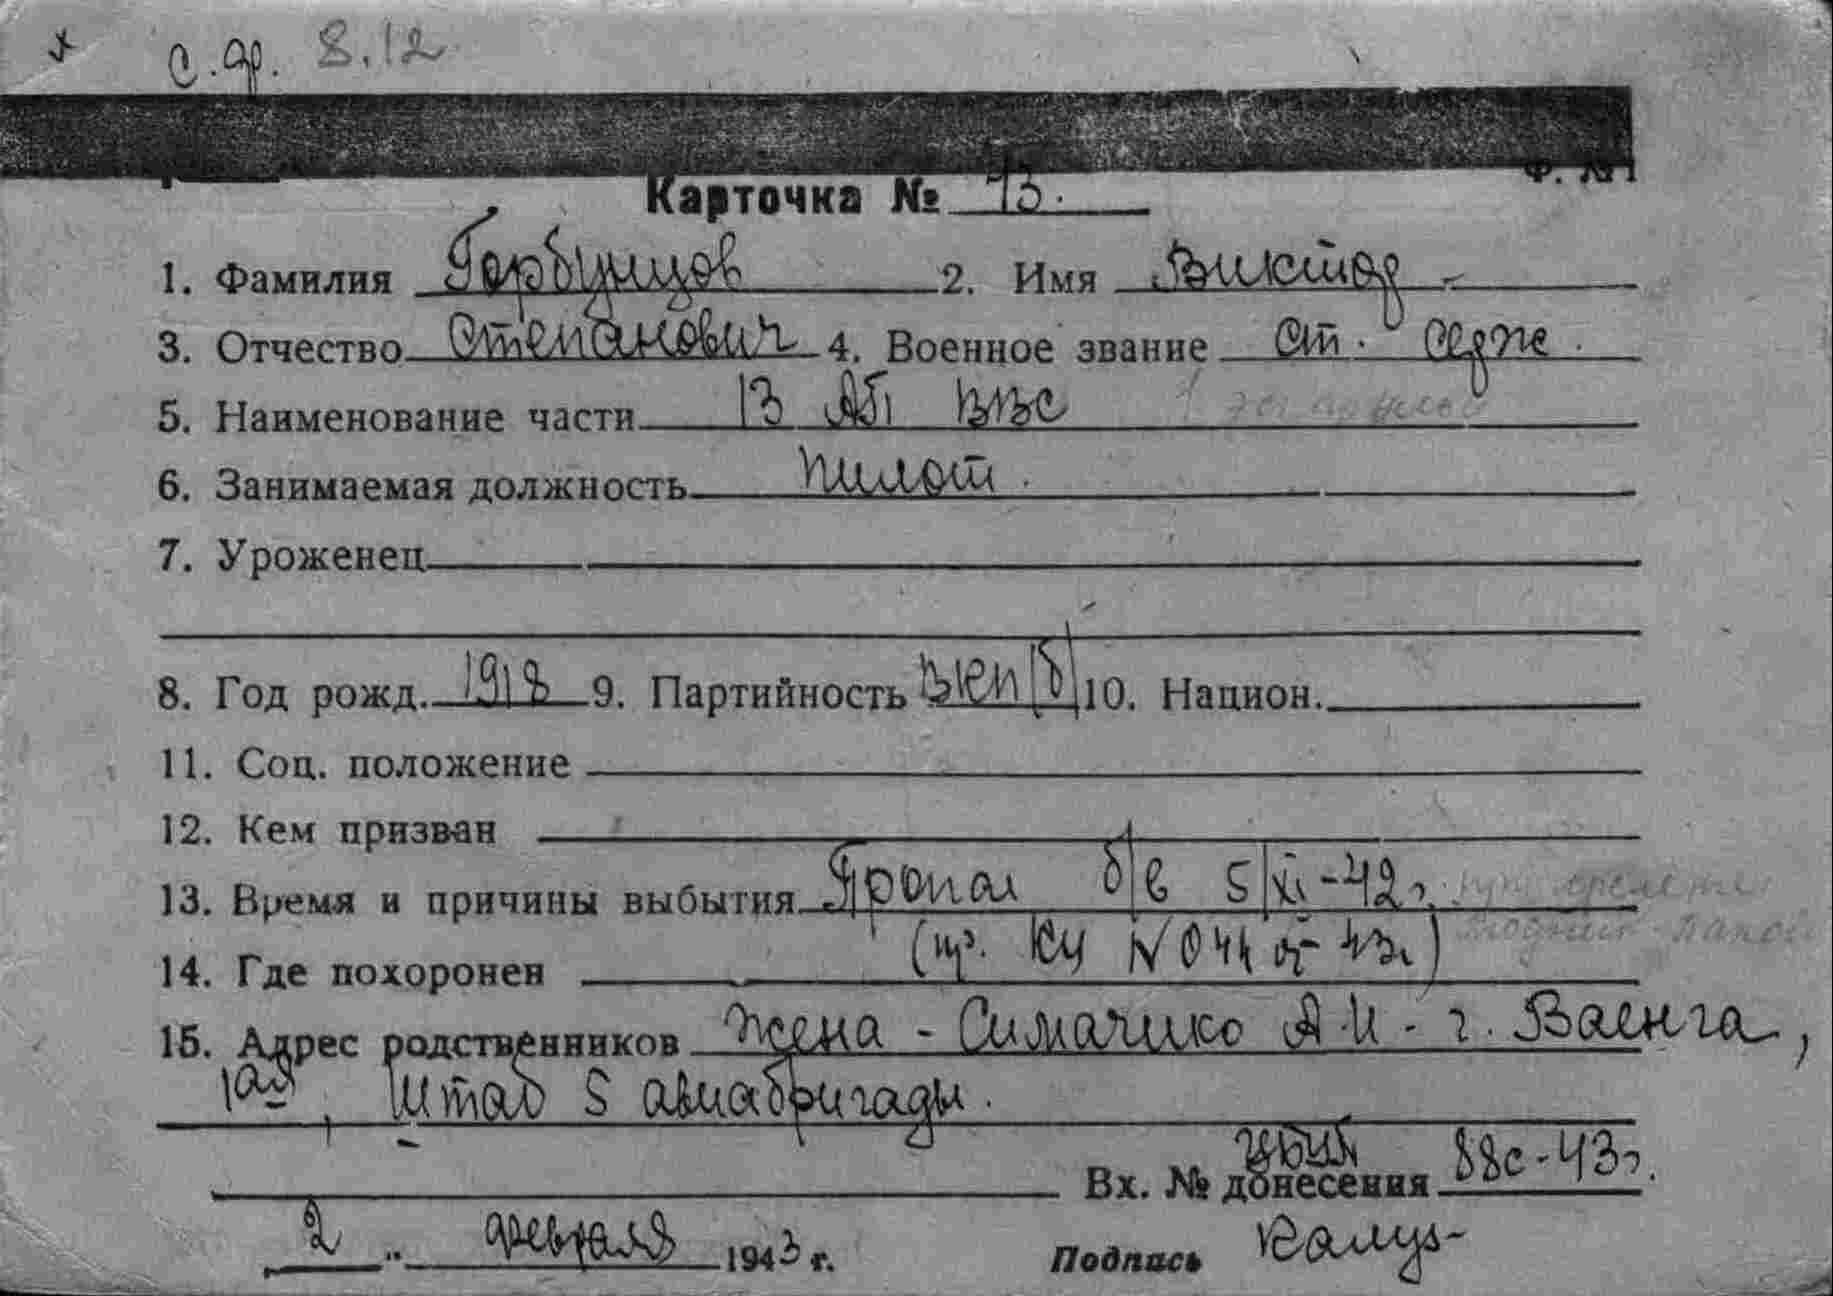 с.др. 8.12
Ф. №1
Карточка № 43.
1. Фамилия Горбунцов 2. Имя Виктор
3. Отчество Степанович 4. Военное звание ст. серж.
5. Наименование части 13 АП ВВС
6. Занимаемая должность пилот.
7. Уроженец
8. Год рожд. 1918 9. Партийность ВКП/б/ 10. Национ.
11. Соц. положение
12. Кем призван
13. Время и причины выбытия Пропал б/в 5/XI-42г.
14. Где похоронен (пр. КЧ N 044 43г)
15. Адрес родственников Жена - Симачико А.И. - г. Ваенга,
1ая, Штаб 5 авиабригады.
Вх. № донесения 88с-43г.
2 " февраля 1943 г. Подпись